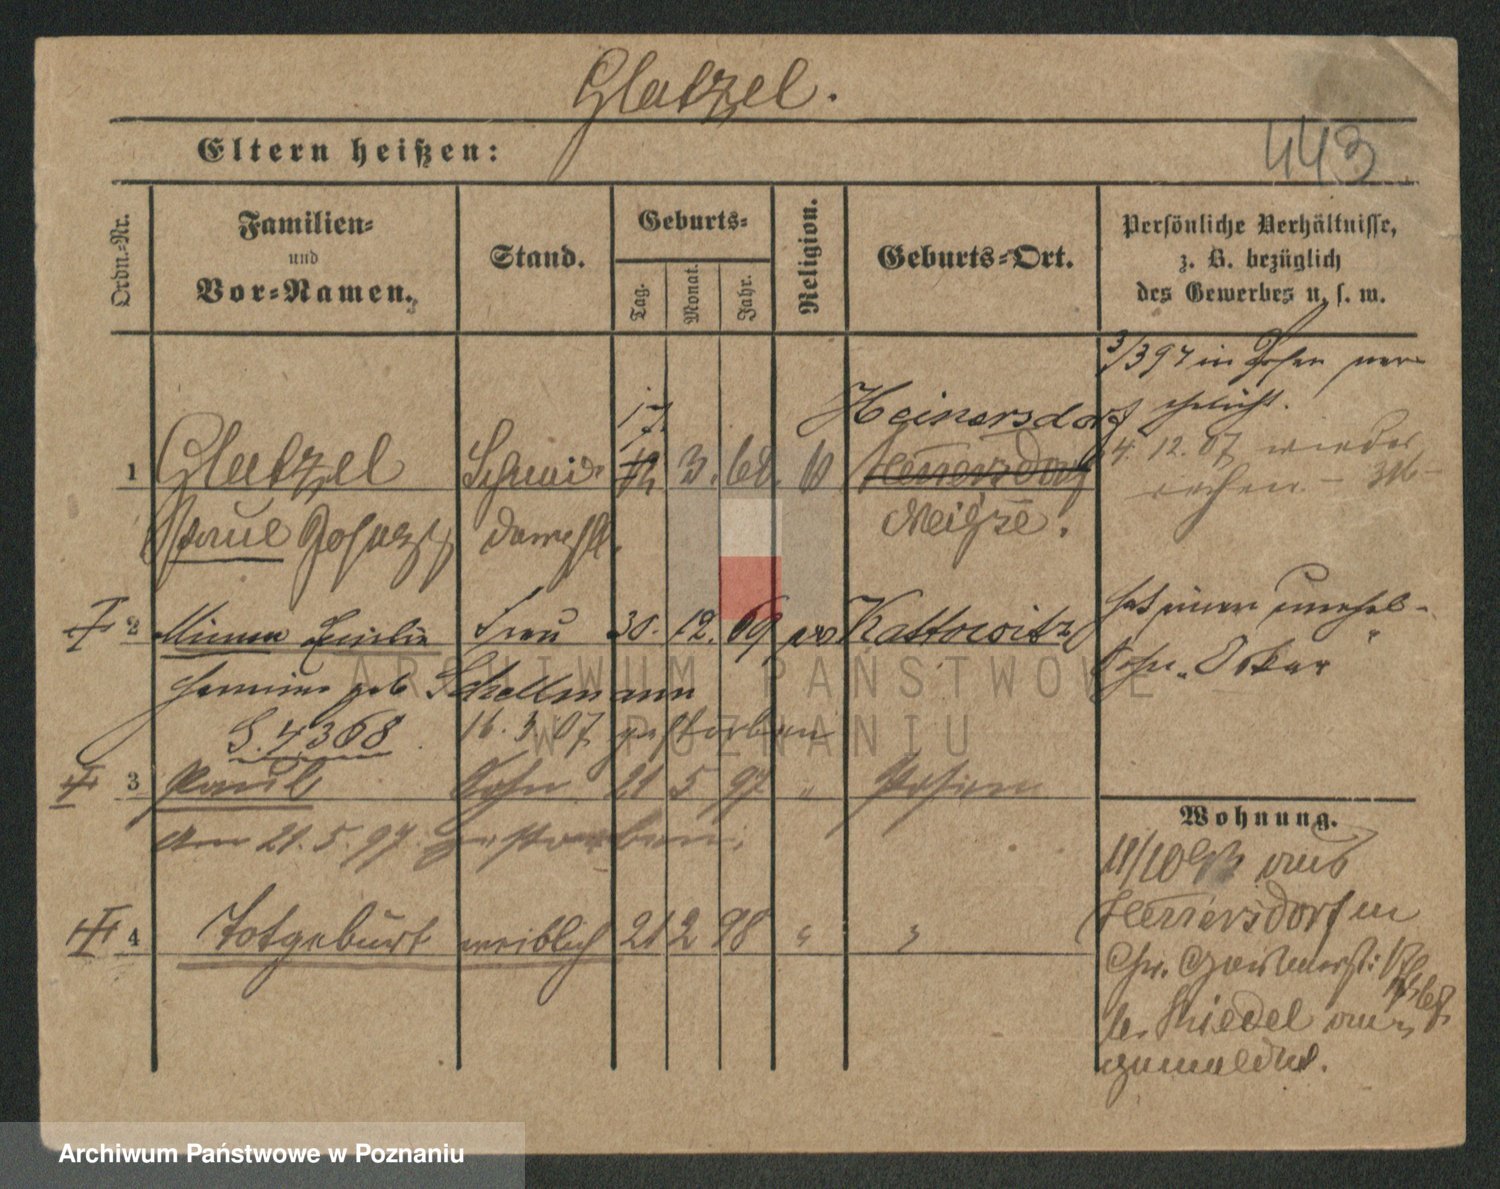 Glatzel.
Eltern heißen:
443
Ordn.-Nr.
Familien-
und
Vor-Namen.
Stand.
Geburts-
Tag.
Monat.
Jahr.
Religion.
Geburts-Ort.
Persönliche Verhältnisse,
z. B. bezüglich
des Gewerbes u. s. w.
3/3 97 in Posen ver-
ehelicht.
17.
Heinersdorf
1 Glatzel 3. 68. Heinersdorf
4. 12. 07 wieder
Paul Neiße.
2 Minna Emilie Frau 30. 12. 69 Kattowitz
hat einen unehel-
geb Schellmann
Sohn „Oskar"
G. 4368 16. 3 07 gestorben
3 Paul Sohn 21 5 97 " Posen
am 21. 5. 97. gestorben.
Wohnung.
11/10 aus
Heinersdorf
4 Totgeburt weiblich 21 2 98 " "
b. Riedel
gemeldet.
ARCHIWUM PAŃSTWOWE
W POZNANIU
Archiwum Państwowe w Poznaniu